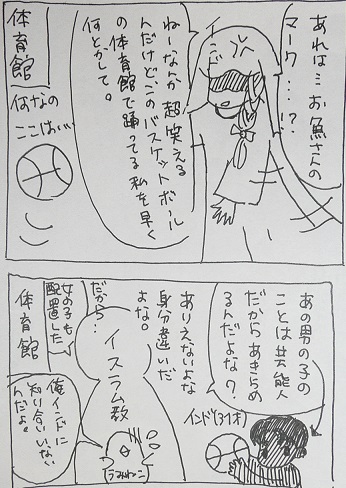 あれは…お魚さんの
マーク…!?
体育館
何なの
ここはい
ねーなんか超笑える
んだけどこのバスケットボール
の体育館で踊ってる私を早く
何とかして。
あの男の子の
ことは芸能人
だからあきらめ
るんだよな?
インド(31才)
ありえないよな
身分違いだ
よな。
イスラム教
だから…
女の子も
配置した
体育館
俺インドに
知り合いいない
んだよ。
(うみねこ)